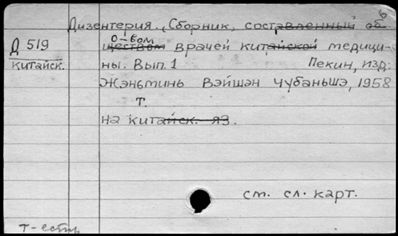 6
Дизентерия. (Сборник, составленный об-
о-вом
Д 519 ществом врачей китайской медици-
китайск. ны. Вып. 1 Пекин, изд.
Жэньминь Вэйшэн Чубаньшэ, 1958
т.
на китайск. яз.
см. сл. карт.
т-есть